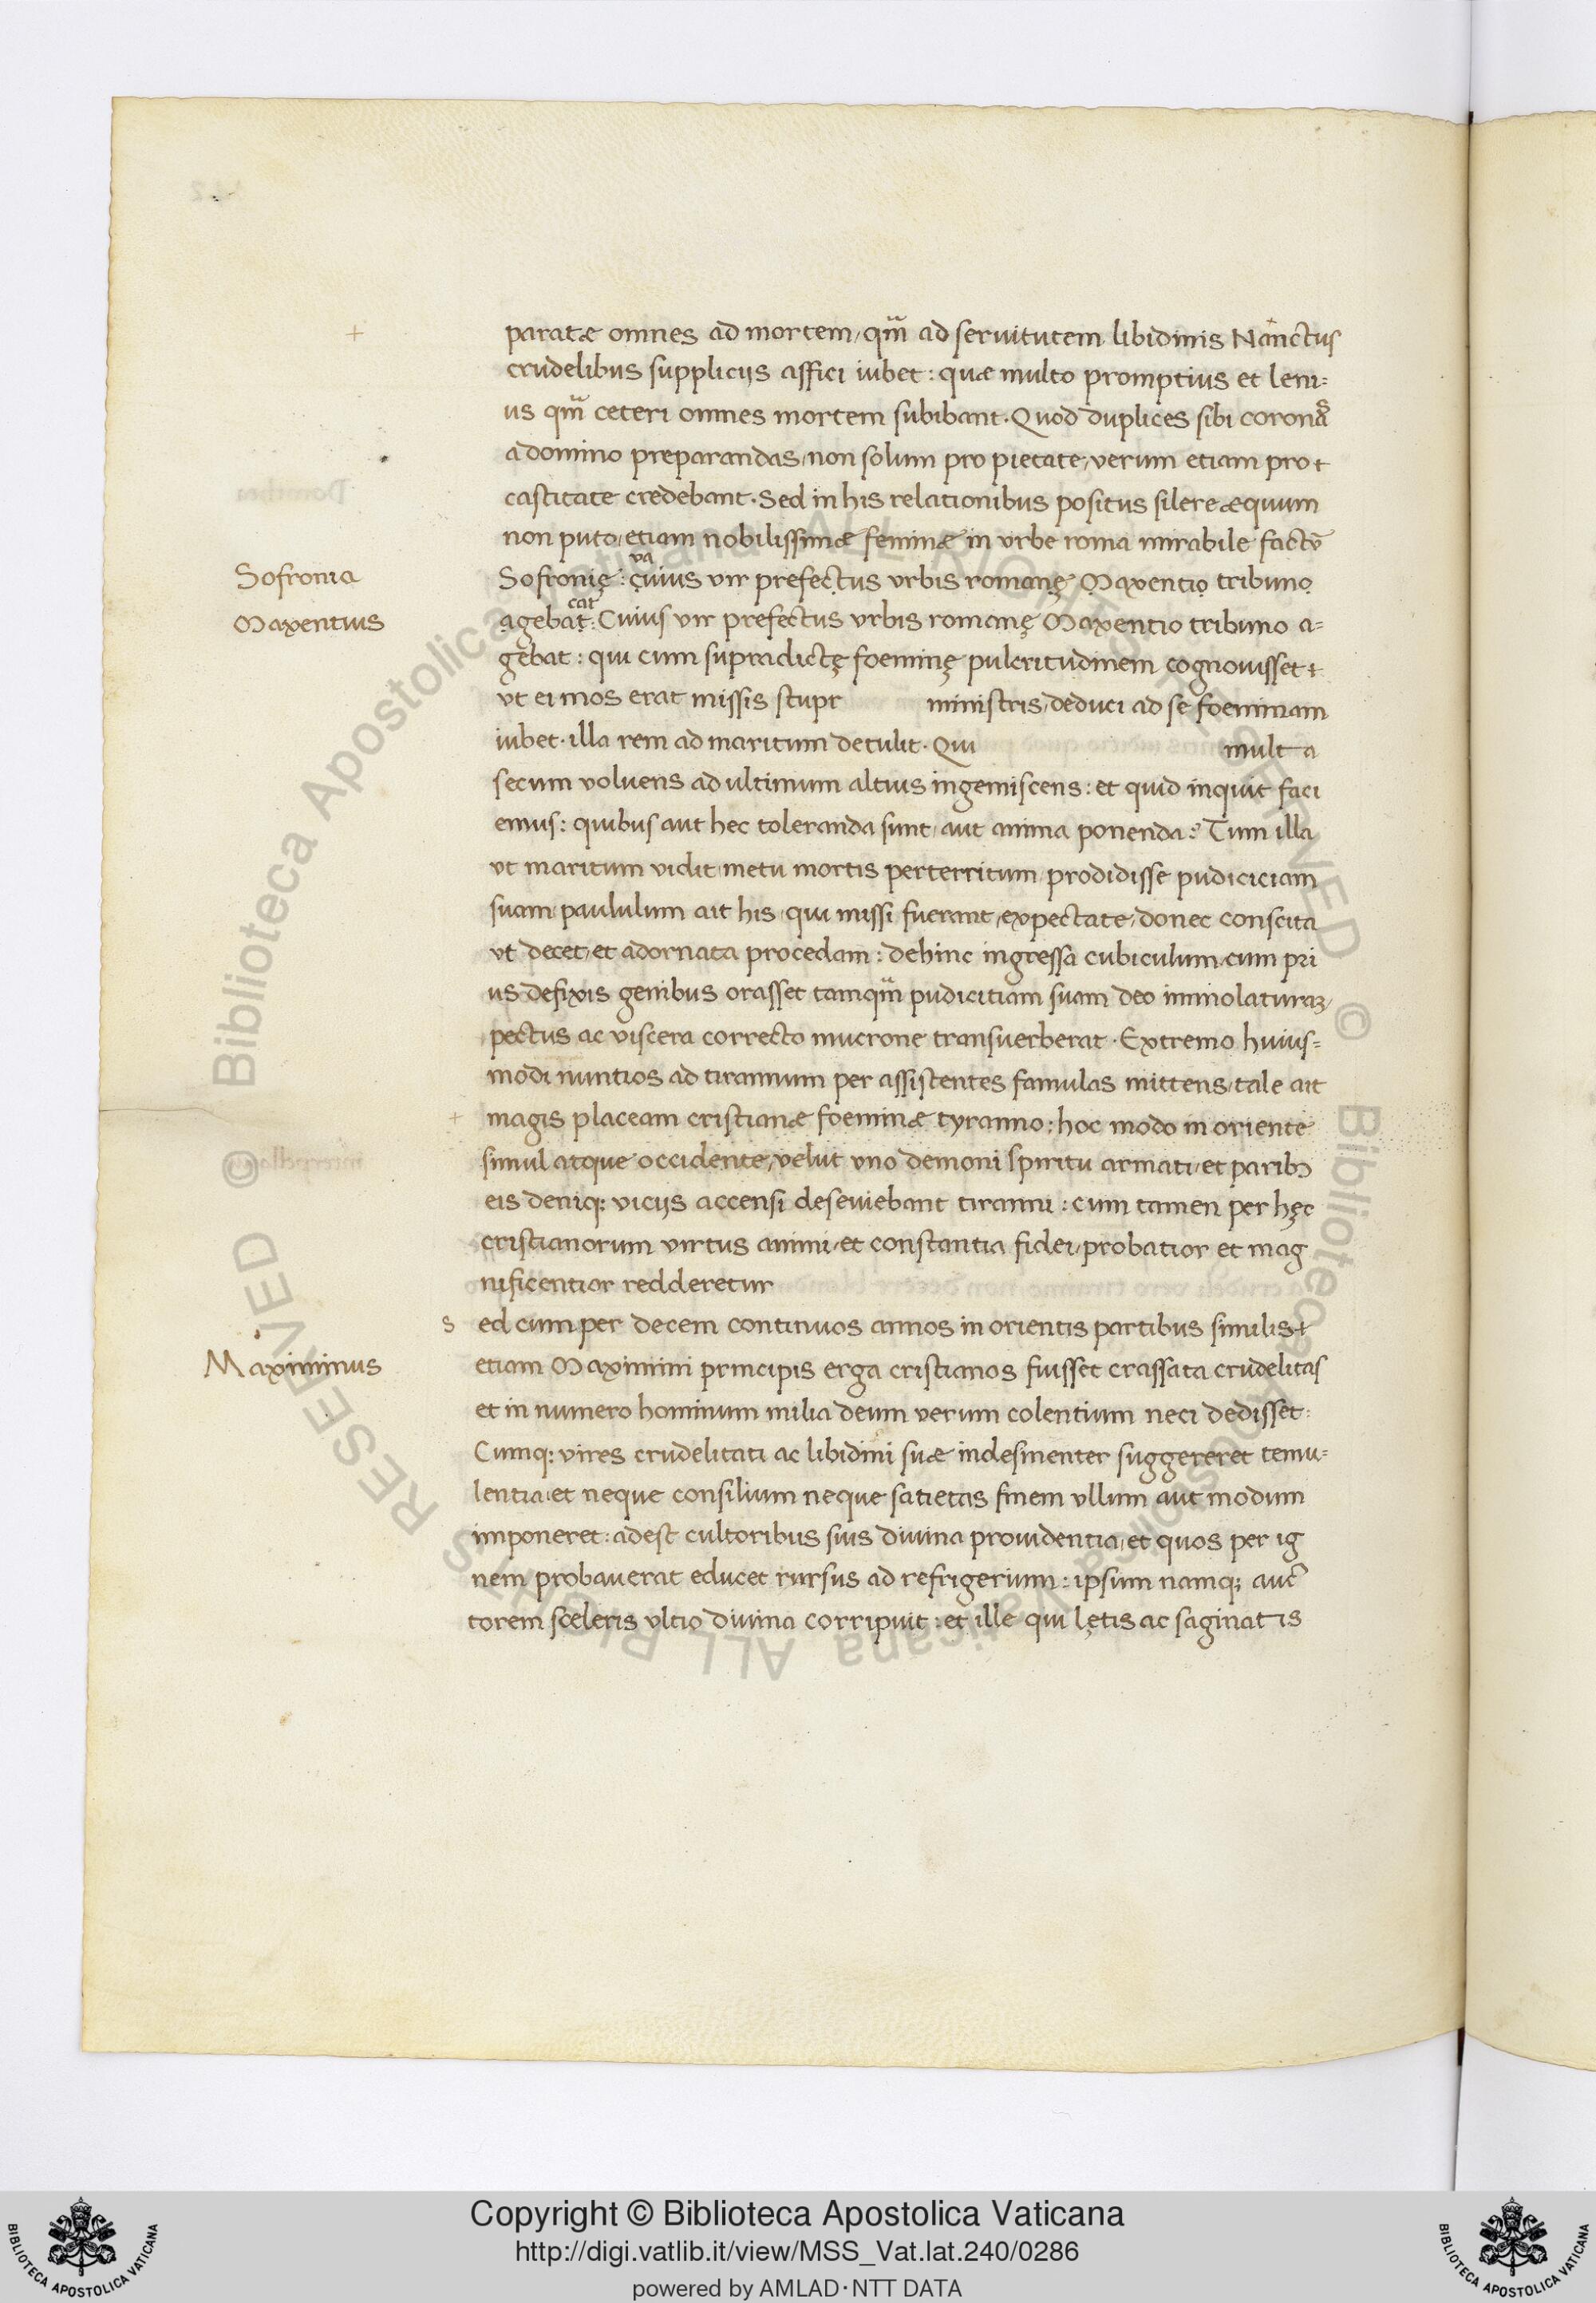 paratæ omnes ad mortem, qm̄ ad seruitutem libidinis Nanctus
crudelibus supplicijs affici iubet: quæ multo promptius et leni=
us qm̄ ceteri omnes mortem subibant. Quod duplices sibi coronas
a domino preparandas, non solum pro pietate, verum etiam pro
castitate credebant. Sed in his relationibus positus silere æquum
non puto, etiam nobilissimæ feminæ in vrbe roma mirabile factū
va
Sofronia
Sofronię: cuius vir prefectus vrbis romanę Maxentio tribuno
cat
Maxentius
agebat: Cuius vir prefectus vrbis romanę Maxentio tribuno a=
gebat: qui cum supradictę foeminę pulcritudinem cognouisset
vt ei mos erat missis stupr ministris, deduci ad se foeminam
iubet. illa rem ad maritum detulit. Qui mult a
secum voluens ad ultimum altius ingemiscens: et quid inquit faci
emus: quibus aut hec toleranda sunt, aut anima ponenda? Tum illa
vt maritum vidit, metu mortis perterritum, prodidisse pudiciciam
suam, paululum ait his, qui missi fuerant, expectate, donec conscita
vt decet, et adornata procedam: dehinc ingressa cubiculum, cum pri
us defixis genibus orasset tamqm̄ pudicitiam suam deo immolaturaꝫ,
pectus ac viscera correcto mucrone transuerberat. Extremo huius=
modi nuntios ad tirannum per assistentes famulas mittens, tale ait
magis placeam cristianæ foeminæ tyranno: hoc modo in oriente
simul atque occidente, velut vno demoni spiritu armati, et paribꝫ
eis deniqꝫ vicijs accensi deseuiebant tiranni: cum tamen per hęc
cristianorum virtus animi, et constantia fidei, probatior et mag
nificentior redderetur
s ed cum per decem continuos annos in orientis partibus similis
Maximinus
etiam Maximini principis erga cristianos fuisset crassata crudelitas
et in numero hominum milia deum verum colentium neci dedisset:
Cumqꝫ vires crudelitati ac libidini suæ indesinenter suggereret temu=
lentia, et neque consilium neque satietas finem vllum aut modum
imponeret: adest cultoribus suis diuina prouidentia, et quos per ig
nem probauerat educet rursus ad refrigerium: ipsum namqꝫ auc
torem sceleris vltio diuina corripuit: et ille qui lętis ac saginatis
Copyright © Biblioteca Apostolica Vaticana
http://digi.vatlib.it/view/MSS_Vat.lat.240/0286
powered by AMLAD·NTT DATA
BIBLIOTECA APOSTOLICA VATICANA
BIBLIOTECA APOSTOLICA VATICANA
© Biblioteca Apostolica Vaticana ALL RIGHTS RESERVED © Biblioteca Apostolica Vaticana ALL RIGHTS RESERVED